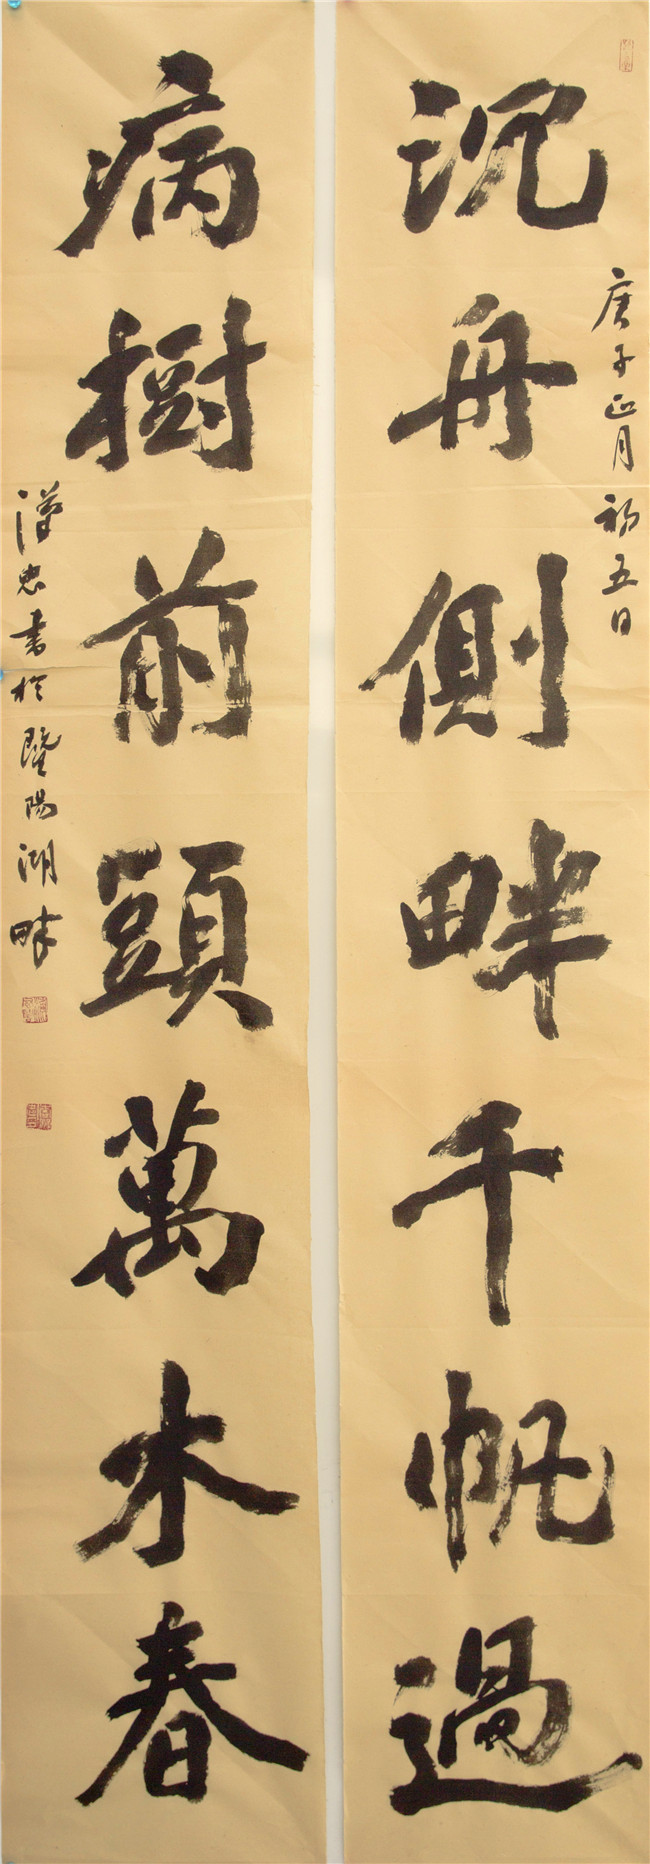 庚子正月初五日
沉舟側畔千帆過
病樹前頭萬木春
漢忠書於暨陽湖畔